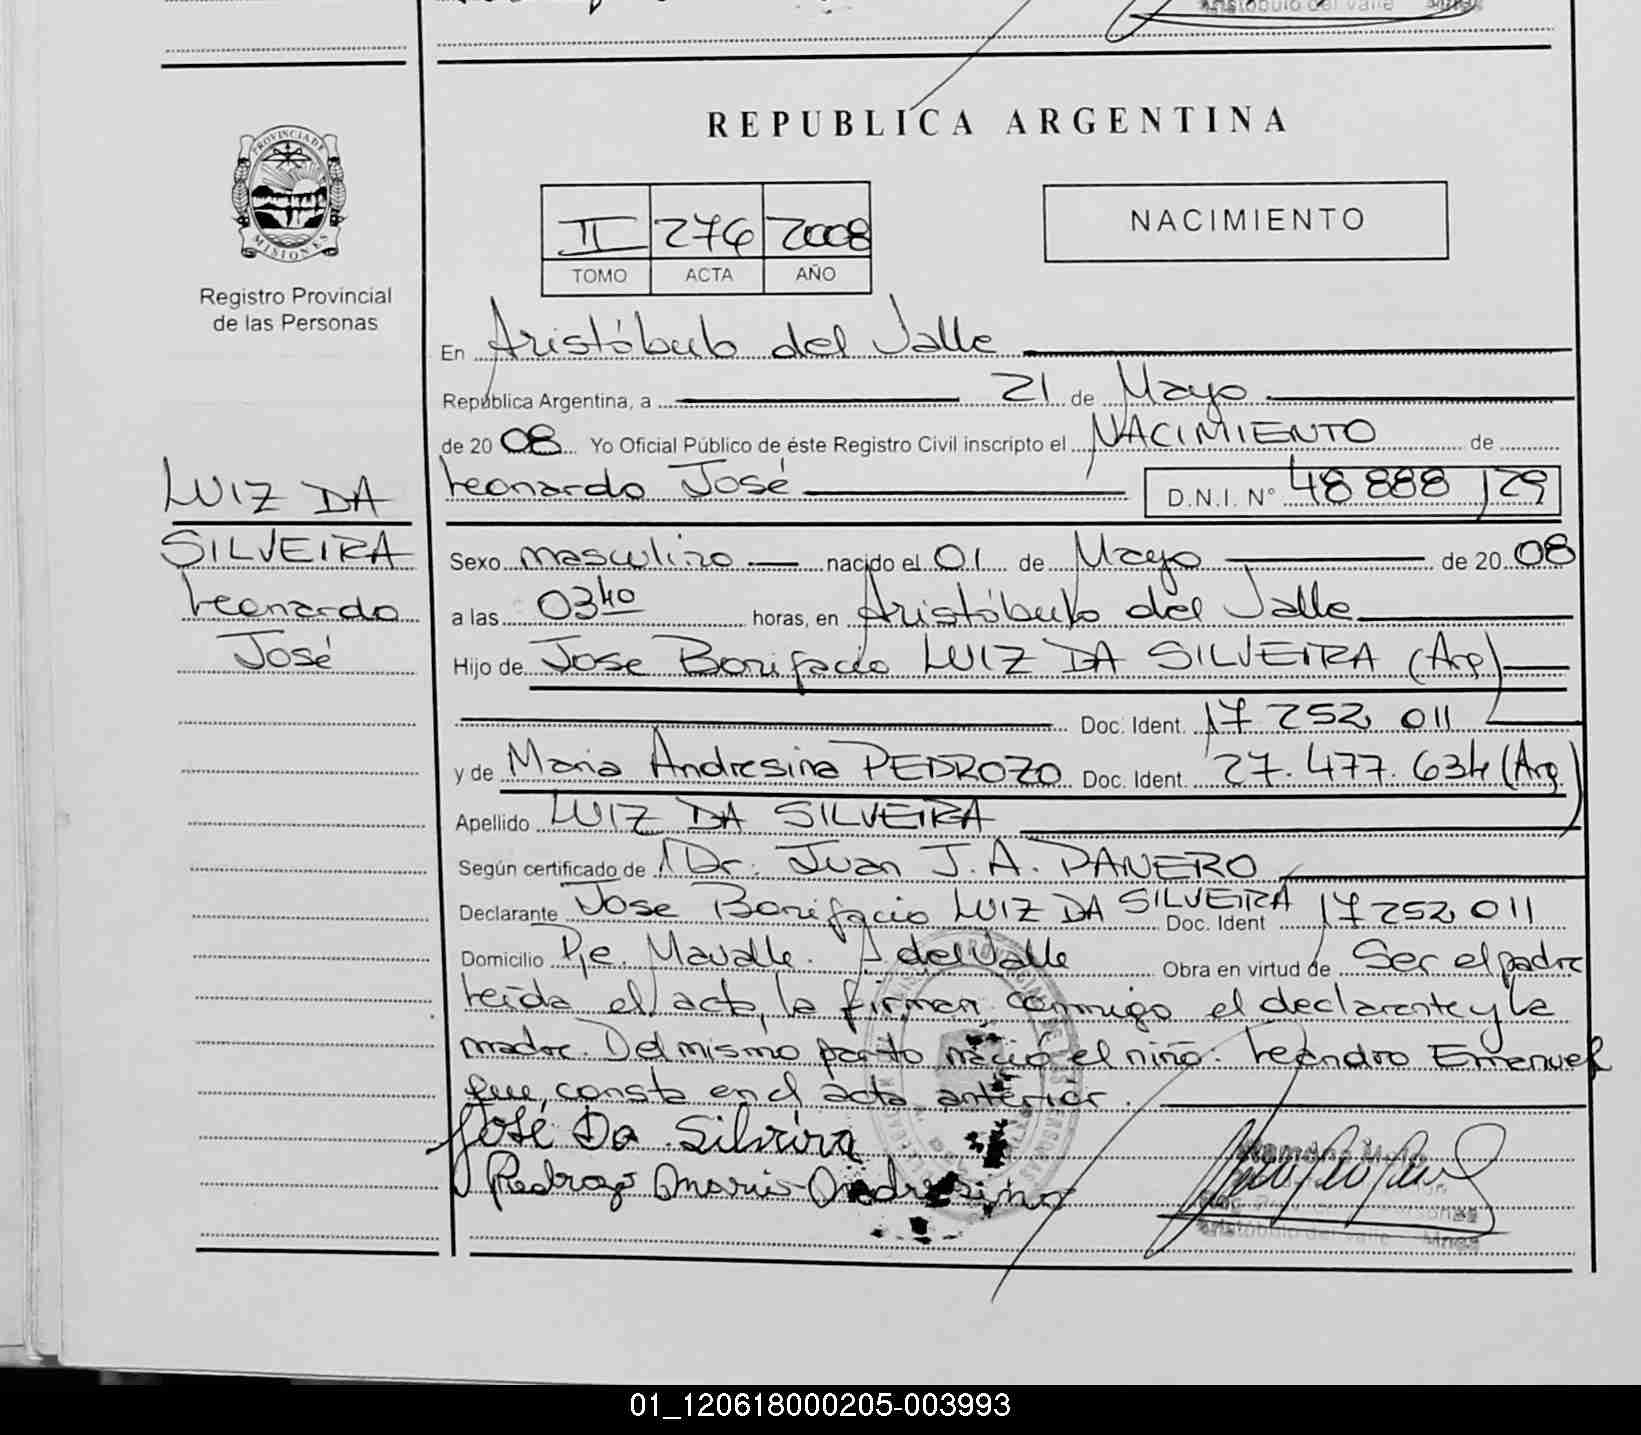 REPUBLICA ARGENTINA
PROVINCIA DE
MISIONES
Registro Provincial
de las Personas
II 276 2008
TOMO ACTA AÑO
NACIMIENTO
LUIZ DA
SILVEIRA
Leonardo
José
En Aristóbulo del Valle
República Argentina, a 21 de Mayo
de 20 08 Yo Oficial Público de éste Registro Civil inscripto el NACIMIENTO de
Leonardo José D.N.I. N° 48 888 129
Sexo masculino nacido el 01 de Mayo de 20 08
a las 03 40 horas, en Aristóbulo del Valle
Hijo de Jose Bonifacio LUIZ DA SILVEIRA (Arg)
Doc. Ident. 17 252 011
y de Maria Andresina PEDROZO Doc. Ident. 27.477.634 (Arg)
Apellido LUIZ DA SILVEIRA
Según certificado de Dr. Juan J. A. DANERO
Declarante Jose Bonifacio LUIZ DA SILVEIRA Doc. Ident 17 252 011
Domicilio Pje. Mavalle. A del Valle Obra en virtud de Ser el padre
Leida el acta, la firman conmigo el declarante y la
madre. Del mismo parto nació el niño: Leandro Emanuel
que, consta en el acta anterior.
José Da Silveira
Pedrozo Maria Andresina
Aristóbulo del Valle Mnes
01_120618000205-003993